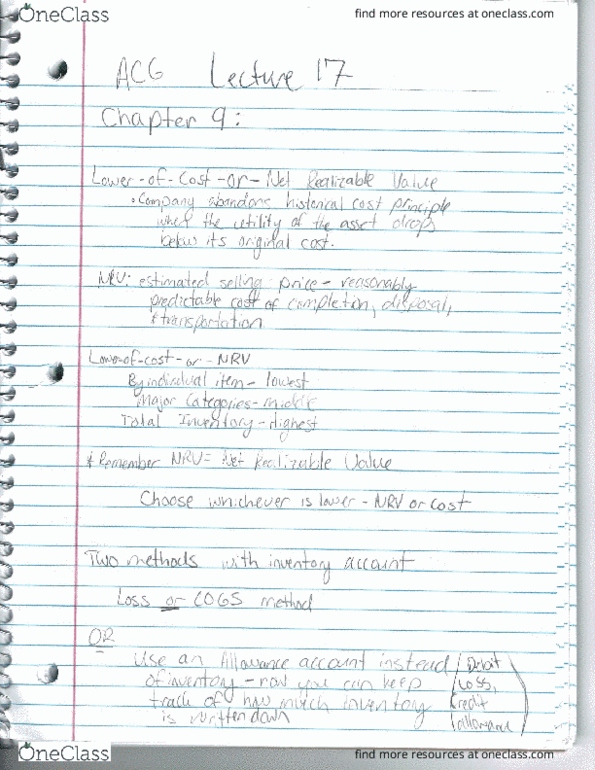 OneClass
find more resources at oneclass.com
ACG Lecture 17
Chapter 9:
Lower-of-Cost-or-Net Realizable Value
• Company abandons historical cost principle
when the utility of the asset drops
below its original cost.
NRV: estimated selling price - reasonably
predictable cost of completion, disposal,
& transportation
Lower-of-cost-or-NRV
By individual item - lowest
Major Categories - middle
Total Inventory - Highest
* Remember NRV = Net Realizable Value
Choose whichever is lower - NRV or cost
Two methods with inventory account
Loss or COGS method
OR
Use an Allowance account instead
of inventory - now you can keep
track of how much inventory
is written down
Debit
Loss,
Credit
allowance
OneClass
find more resources at oneclass.com